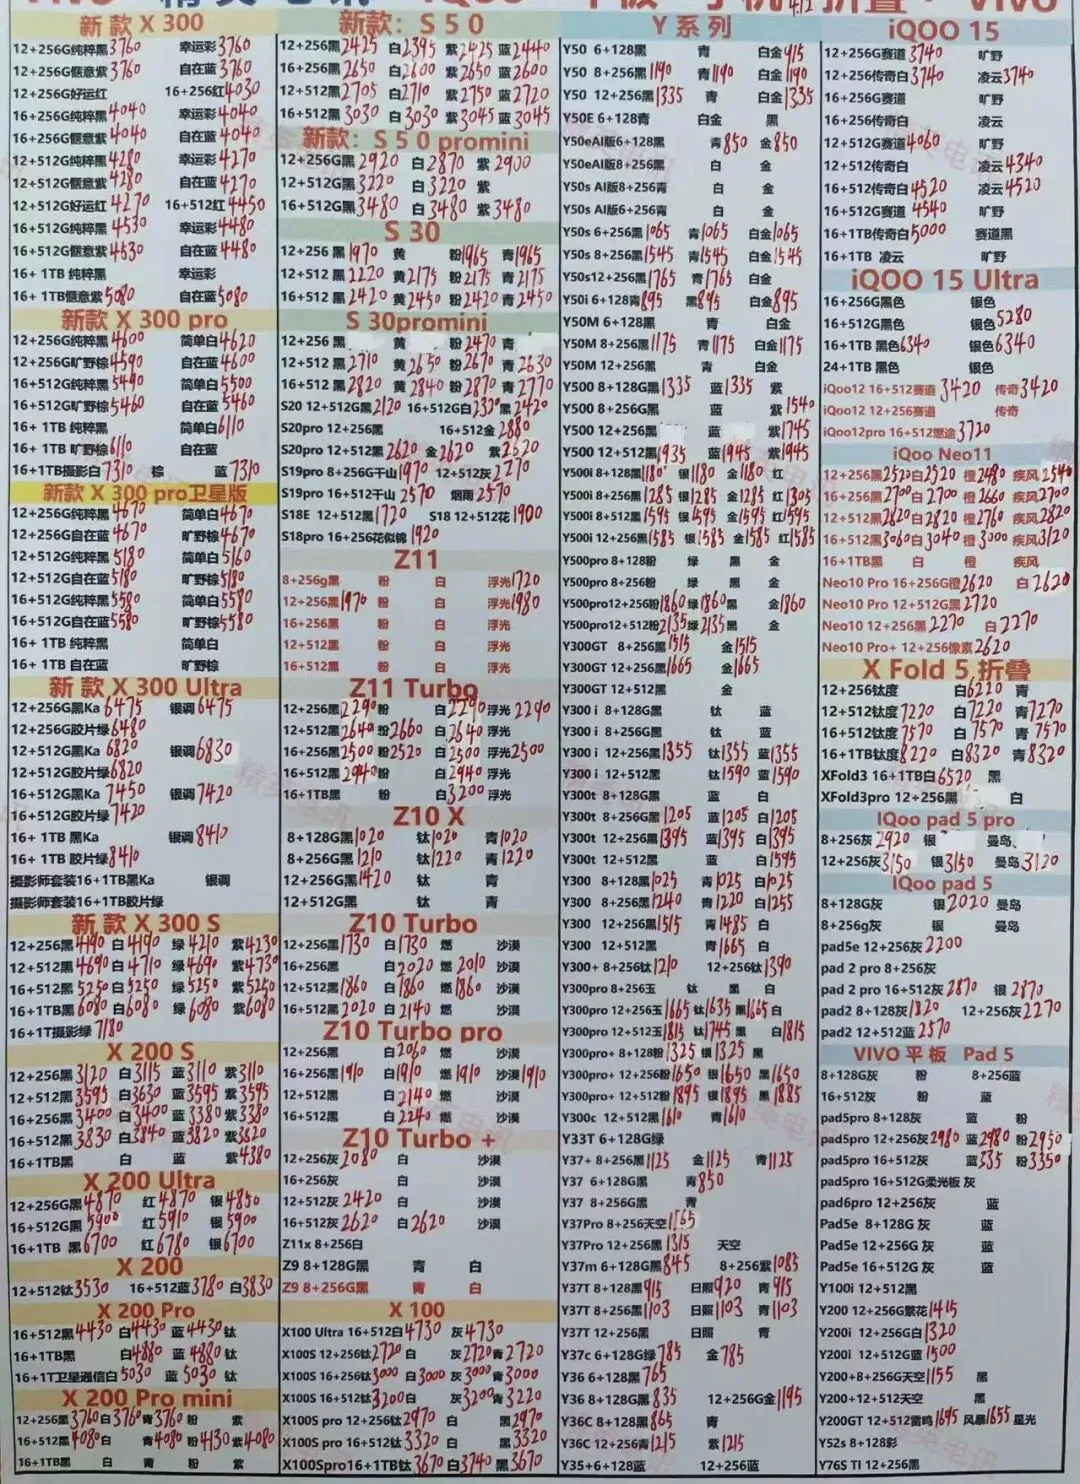 新款 X 300
12+256G纯粹黑3760 幸运彩3760
12+256G惬意紫3760 自在蓝3760
12+256G好运红 16+256红4030
16+256G纯粹黑4040 幸运彩4040
16+256G惬意紫4040 自在蓝4040
12+512G纯粹黑4280 幸运彩4270
12+512G惬意紫4280 自在蓝4270
12+512G好运红4270 16+512红4450
16+512G纯粹黑4530 幸运彩4480
16+512G惬意紫4530 自在蓝4480
16+ 1TB 纯粹黑 幸运彩
16+ 1TB惬意紫5080 自在蓝5080
新款 X 300 pro
12+256G纯粹黑4600 简单白4620
12+256G旷野棕4590 自在蓝4600
16+512G纯粹黑5490 简单白5500
16+512G旷野棕5460 自在蓝5460
16+ 1TB 纯粹黑 简单白6110
16+ 1TB 旷野棕6110 自在蓝
16+1TB摄影白7310 棕 蓝7310
新款 X 300 pro卫星版
12+256G纯粹黑4670 简单白4670
12+256G自在蓝4670 旷野棕4670
12+512G纯粹黑5180 简单白5160
12+512G自在蓝5180 旷野棕5180
16+512G纯粹黑5580 简单白5580
16+512G自在蓝5580 旷野棕5580
16+ 1TB 纯粹黑 简单白
16+ 1TB 自在蓝 旷野棕
新 款 X 300 Ultra
12+256G黑Ka 6475 银调6475
12+256G胶片绿6480
12+512G黑Ka 6820 银调6830
12+512G胶片绿6820
16+512G黑Ka 7450 银调7420
16+512G胶片绿7420
16+ 1TB 黑Ka 银调8410
16+ 1TB 胶片绿8410
摄影师套装16+1TB黑Ka 银调
摄影师套装16+1TB胶片绿
新 款 X 300 S
12+256黑4190 白4190 绿4210 紫4230
12+512黑4690 白4710 绿4690 紫4730
16+512黑5250 白5250 绿5250 紫5250
16+1TB黑6080 白6080 绿6080 紫6080
16+1T摄影绿7180
X 200 S
12+256黑3120 白3115 蓝3110 紫3110
12+512黑3595 白3630 蓝3595 紫3595
16+256黑3400 白3400 蓝3380 紫3380
16+512黑3830 白3840 蓝3820 紫3820
16+1TB黑 白 蓝 紫4380
X 200 Ultra
12+256G黑4870 红4870 银4850
16+512G黑5900 红5910 银5900
16+1TB 黑6700 红6780 银6700
X 200
12+512钛3530 16+512蓝3780 白3830
X 200 Pro
16+512黑4430 白4430 蓝4430 钛
16+1TB黑 白4880 蓝4880 钛
16+1T卫星通信白5030 蓝5030 钛
X 200 Pro mini
12+256黑3760 白3760 青3760 粉 紫
16+512黑4080 白 青4080 粉4130 紫4080
16+1TB黑 白 青 粉 紫
新款: S 5 0
12+256黑2425 白2395 紫2425 蓝2440
16+256黑2650 白2600 紫2650 蓝2600
12+512黑2705 白2710 紫2750 蓝2720
16+512黑3030 白3030 紫3045 蓝3045
新款: S 5 0 promini
12+256G黑2920 白2870 紫2900
12+512G黑3220 白3220 紫
16+512G黑3480 白3480 紫3480
S 30
12+256 黑1970 黄 粉1965 青1965
12+512 黑2220 黄2175 粉2175 青2175
16+512 黑2420 黄2450 粉2420 青2450
S 30promini
12+256 黑 黄 粉2470 青
12+512 黑2710 黄2650 粉2670 青2630
16+512 黑2820 黄2840 粉2870 青2770
S20 12+512G黑2120 16+512G白2330 黑2420
S20pro 12+256黑 16+512金2880
S20pro 12+512黑2620 金2620 紫2620
S19pro 8+256G千山1970 12+512灰2270
S19pro 16+512千山2570 烟雨2570
S18E 12+512黑1720 S18 12+512花1900
S18pro 16+256花似锦1920
Z11
8+256g黑 粉 白 浮光1720
12+256黑1970 粉 白 浮光1980
16+256黑 粉 白 浮光
12+512黑 粉 白 浮光
16+512黑 粉 白 浮光
Z11 Turbo
12+256黑2290 粉 白2290 浮光2290
12+512黑2640 粉2660 白2640 浮光
16+256黑2500 粉2520 白2500 浮光2500
16+512黑2940 粉 白2940 浮光
16+1TB黑 粉 白3200 浮光
Z10 X
8+128G黑1020 钛1020 青1020
8+256G黑1210 钛1220 青1220
12+256G黑1420 钛 青
12+512G黑 钛 青
Z10 Turbo
12+256黑1730 白1730 燃 沙漠
16+256黑 白2020 燃2010 沙漠
12+512黑1860 白1860 燃1860 沙漠
16+512黑2020 白2140 燃 沙漠
Z10 Turbo pro
12+256黑 白2060 燃 沙漠
16+256黑1910 白1910 燃1910 沙漠1910
12+512黑 白2140 燃 沙漠
16+512黑 白2240 燃 沙漠
Z10 Turbo +
12+256灰2080 白 沙漠
16+256灰 白 沙漠
12+512灰2420 白 沙漠
16+512灰2620 白2620 沙漠
Z11x 8+256白
Z9 8+128G黑 青 白
Z9 8+256G黑 青 白
X 100
X100 Ultra 16+512白4730 灰4730
X100S 12+256钛2720 白 灰2720 青2720
X100S 16+256钛3000 白3000 灰3000 青3000
X100S 16+512钛3200 白 灰3200 青3220
X100S pro 12+256钛2970 白 黑2970
X100S pro 16+512钛3320 白 黑3320
X100Spro16+1TB钛3670 白3740 黑3670
Y 系列
Y50 6+128黑 青 白金915
Y50 8+256黑1190 青1190 白金1190
Y50 12+256黑1335 青 白金1335
Y50E 6+128青 白金 黑
Y50eAI版6+128黑 青850 金850
Y50eAI版8+256黑 白 金
Y50s AI版8+256青 白 金
Y50s AI版6+256青 白 金
Y50s 6+256黑1065 青1065 白金1065
Y50s 8+256黑1545 青1545 白金1545
Y50s12+256黑1765 青1765 白金
Y50i 6+128青895 黑895 白金895
Y50M 6+128黑 青 白金
Y50M 8+256黑1175 青1175 白金1175
Y50M 12+256黑 青 白金
Y500 8+128G黑1335 蓝1335 紫
Y500 8+256G黑 蓝 紫1540
Y500 12+256黑 蓝 紫1745
Y500 12+512黑1935 蓝1945 紫1945
Y500i 8+128黑1180 银1180 金1180 红
Y500i 8+256黑1285 银1285 金1285 红1305
Y500i 8+512黑1595 银1595 金1595 红1595
Y500i 12+256黑1585 银1585 金1585 红1585
Y500pro 8+128粉 绿 黑 金
Y500pro 8+256粉 绿 黑 金
Y500pro12+256粉1860 绿1860 黑 金1860
Y500pro12+512粉2135 绿2135 黑 金
Y300GT 8+256黑1515 金1515
Y300GT 12+256黑1665 金1665
Y300GT 12+512黑 金
Y300 i 8+128G黑 钛 蓝
Y300 i 8+256G黑 钛 蓝
Y300 i 12+256黑1355 钛1355 蓝1355
Y300 i 12+512黑 钛1590 蓝1590
Y300t 8+128G黑 蓝 白
Y300t 8+256G黑1205 蓝1205 白1205
Y300t 12+256黑1395 蓝1395 白1395
Y300t 12+512黑 蓝 白1595
Y300 8+128黑1025 青1025 白1025
Y300 8+256黑1240 青1220 白1255
Y300 12+256黑1515 青1485 白
Y300 12+512黑 青1665 白
Y300+ 8+256钛1210 12+256钛1390
Y300pro 8+256玉 钛 黑 白
Y300pro 12+256玉1665 钛1635 黑1665 白
Y300pro 12+512玉1815 钛1745 黑 白1815
Y300pro+ 8+128粉1325 银1325 黑
Y300pro+ 12+256粉1650 银1650 黑1650
Y300pro+ 12+512粉1895 银1895 黑1885
Y300c 12+512黑1610 青1610
Y33T 6+128G绿
Y37+ 8+256黑1125 金1125 青1125
Y37 6+128G黑 青850
Y37 8+256G黑 青
Y37Pro 8+256天空1165
Y37Pro 12+256黑1315 天空
Y37m 6+128G黑845 8+256紫1085
Y37T 8+128G黑915 日照920 青915
Y37T 8+256黑1103 日照1103 青1103
Y37T 12+256黑 日照 青
Y37c 6+128G绿785 金785
Y36 6+128黑765
Y36 8+128G黑835 12+256G金1195
Y36C 8+128黑865 青
Y36C 12+256青1215 紫1215
Y35+6+128蓝 12+256蓝
iQOO 15
12+256G赛道3740 旷野
12+256传奇白3740 凌云3740
16+256G赛道 旷野
16+256传奇白 凌云
12+512G赛道4060 旷野
12+512传奇白 凌云4340
16+512传奇白4520 凌云4520
16+512G赛道4540 旷野
16+1TB传奇白5000 赛道黑
16+1TB 凌云 旷野
iQOO 15 Ultra
16+256G黑色 银色
16+512G黑色 银色5280
16+1TB 黑色6340 银色6340
24+1TB 黑色 银色
iQoo12 16+512赛道3420 传奇3420
iQoo12 12+256赛道 传奇
iQoo12pro 16+512燃途3720
iQoo Neo11
12+256黑2520 白2520 橙2480 疾风2540
16+256黑2700 白2700 橙2660 疾风2700
12+512黑2820 白2820 橙2760 疾风2820
16+512黑3060 白3040 橙3000 疾风3120
16+1TB黑 白 橙 疾风
Neo10 Pro 16+256G橙2620 白2620
Neo10 Pro 12+512G黑2720
Neo10 12+256黑2270 白2270
Neo10 Pro+ 12+256像素2620
X Fold 5 折叠
12+256钛度 白6220 青
12+512钛度7220 白7220 青7270
16+512钛度7570 白7570 青7570
16+1TB钛度8220 白8320 青8320
XFold3 16+1TB白6520 黑
XFold3pro 12+256黑 白
IQoo pad 5 pro
8+256灰2920 银 曼岛
12+256灰3150 银3150 曼岛3120
IQoo pad 5
8+128G灰 银2020 曼岛
8+256g灰 银 曼岛
pad5e 12+256灰2200
pad 2 pro 8+256灰
pad 2 pro 16+512灰2870 银2870
pad2 8+128灰1820 12+256灰2270
pad2 12+512蓝2570
VIVO 平板 Pad 5
8+128G灰 粉 8+256蓝
16+512灰 粉 蓝
pad5pro 8+128灰 蓝 粉
pad5pro 12+256灰2980 蓝2980 粉2950
pad5pro 16+512灰 蓝335 粉3350
pad5pro 16+512G柔光板 灰
pad6pro 12+256灰 蓝
Pad5e 8+128G 灰 蓝
Pad5e 12+256G 灰 蓝
Pad5e 16+512G 灰 蓝
Y100i 12+512黑
Y200 12+256G繁花1415
Y200i 12+256G白1320
Y200i 12+512G蓝1500
Y200+8+256G天空1155 黑
Y200+12+512天空 黑
Y200GT 12+512雷鸣1695 风暴1655 星光
Y52s 8+128彩
Y76S TI 12+256黑